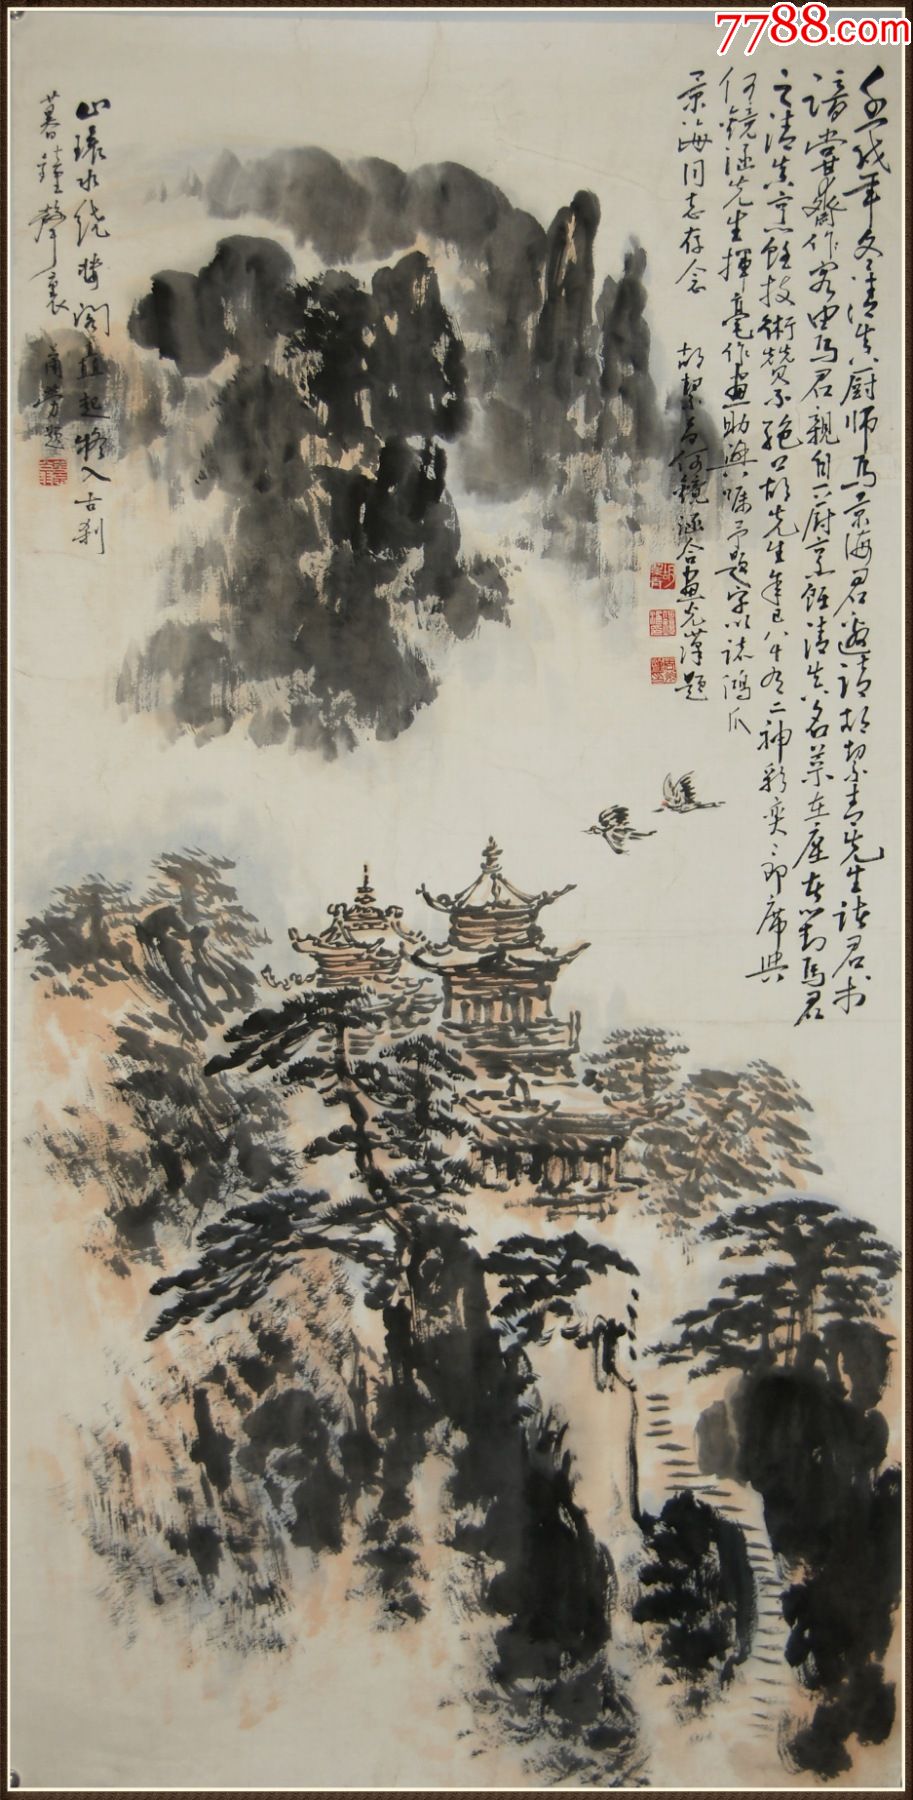 7788.com
壬戌年冬清真厨师马景海君邀请胡絜青先生诸君于
谙赏斋作客由马君亲自下厨烹饪清真名菜在座者对马君
之清真烹饪技术赞不绝口胡先生年已八十有二神彩奕々即席与
何镜涵先生挥毫作画助兴嘱予题字以志鸿爪
景海同志存念
胡絜青何镜涵合画光汉题
山环水绕楼阁直起将入古刹
暮钟声里
萧劳题